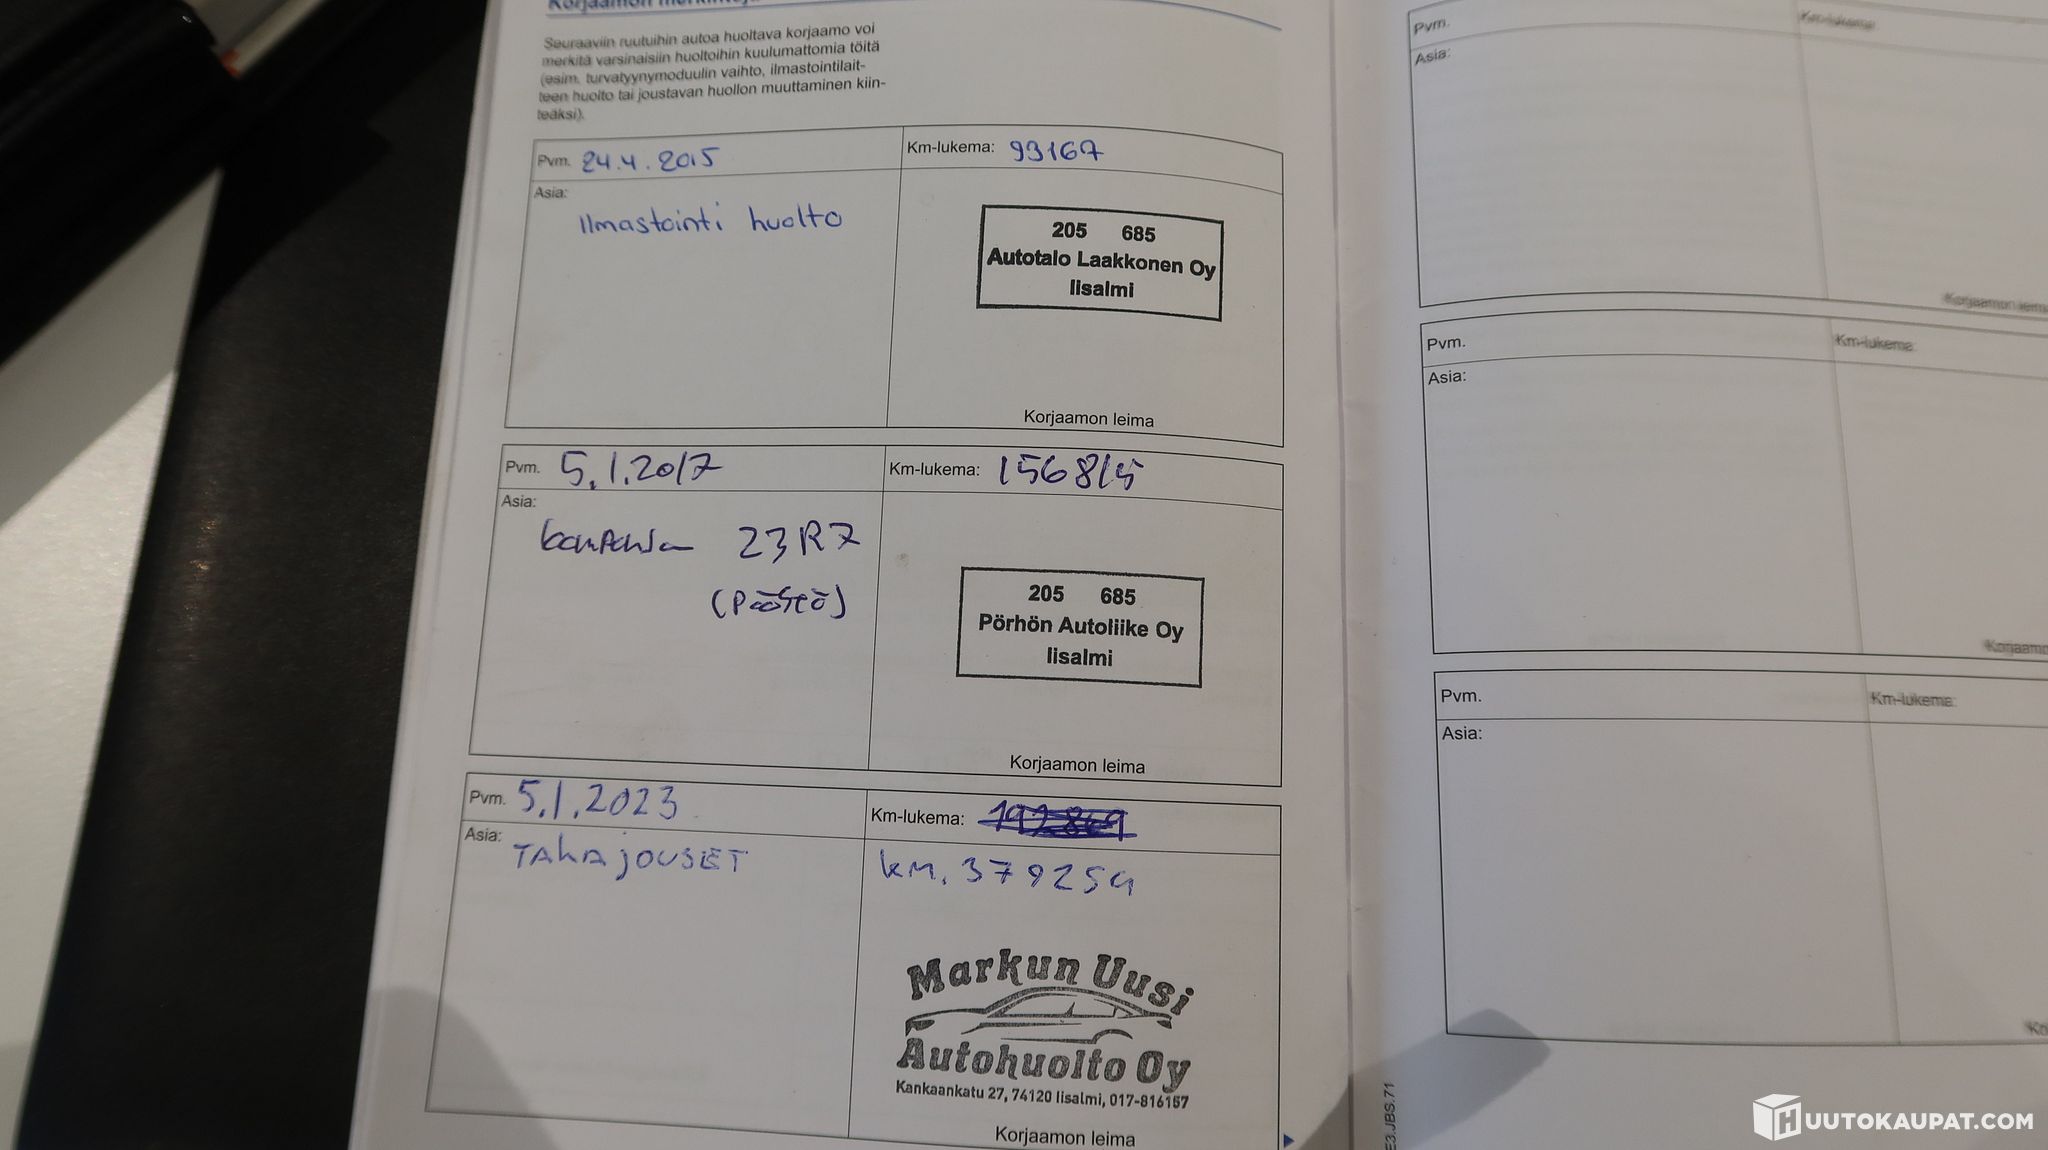 Korjaamon merkintöjä
Seuraaviin ruutuihin autoa huoltava korjaamo voi
merkitä varsinaisiin huoltoihin kuulumattomia töitä
(esim. turvatyynymoduulin vaihto, ilmastointilait-
teen huolto tai joustavan huollon muuttaminen kiin-
teäksi).
Pvm. 24.4.2015
Km-lukema: 93167
Asia:
Ilmastointi huolto
205 685
Autotalo Laakkonen Oy
Iisalmi
Korjaamon leima
Pvm. 5.1.2017
Km-lukema: 156815
Asia:
kampanja 23R7
(päästö)
205 685
Pörhön Autoliike Oy
Iisalmi
Korjaamon leima
Pvm. 5.1.2023
Km-lukema:
Asia:
TAKAJOUSET
km. 379259
Markun Uusi
Autohuolto Oy
Kankaankatu 27, 74120 Iisalmi, 017-816157
Korjaamon leima
Pvm.
Km-lukema:
Asia:
Korjaamon leima
Pvm.
Km-lukema:
Asia:
Korjaamo
Pvm.
Km-lukema:
Asia:
Ko
E3.JBS.71
HUUTOKAUPAT.COM